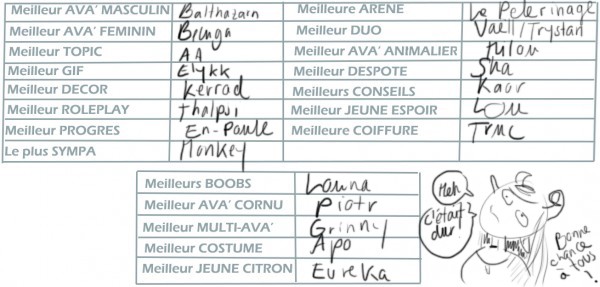 Meilleur AVA' MASCULIN Balthazain
Meilleur AVA' FEMININ Brunga
Meilleur TOPIC AA
Meilleur GIF Elykk
Meilleur DECOR Kerrod
Meilleur ROLEPLAY
Meilleur PROGRES En-Paule
Le plus SYMPA Monkey
Meilleure ARENE Le Pelerinage
Meilleur DUO Vaell/Trystan
Meilleur AVA' ANIMALIER
Meilleur DESPOTE Sha
Meilleurs CONSEILS Kaor
Meilleur JEUNE ESPOIR Lou
Meilleure COIFFURE Truc
Meilleurs BOOBS Louna
Meilleur AVA' CORNU Piotr
Meilleur MULTI-AVA' Grinny
Meilleur COSTUME Apo
Meilleur JEUNE CITRON Eureka
Meh
c'était
dur
Bonne
chance
à
tous
!